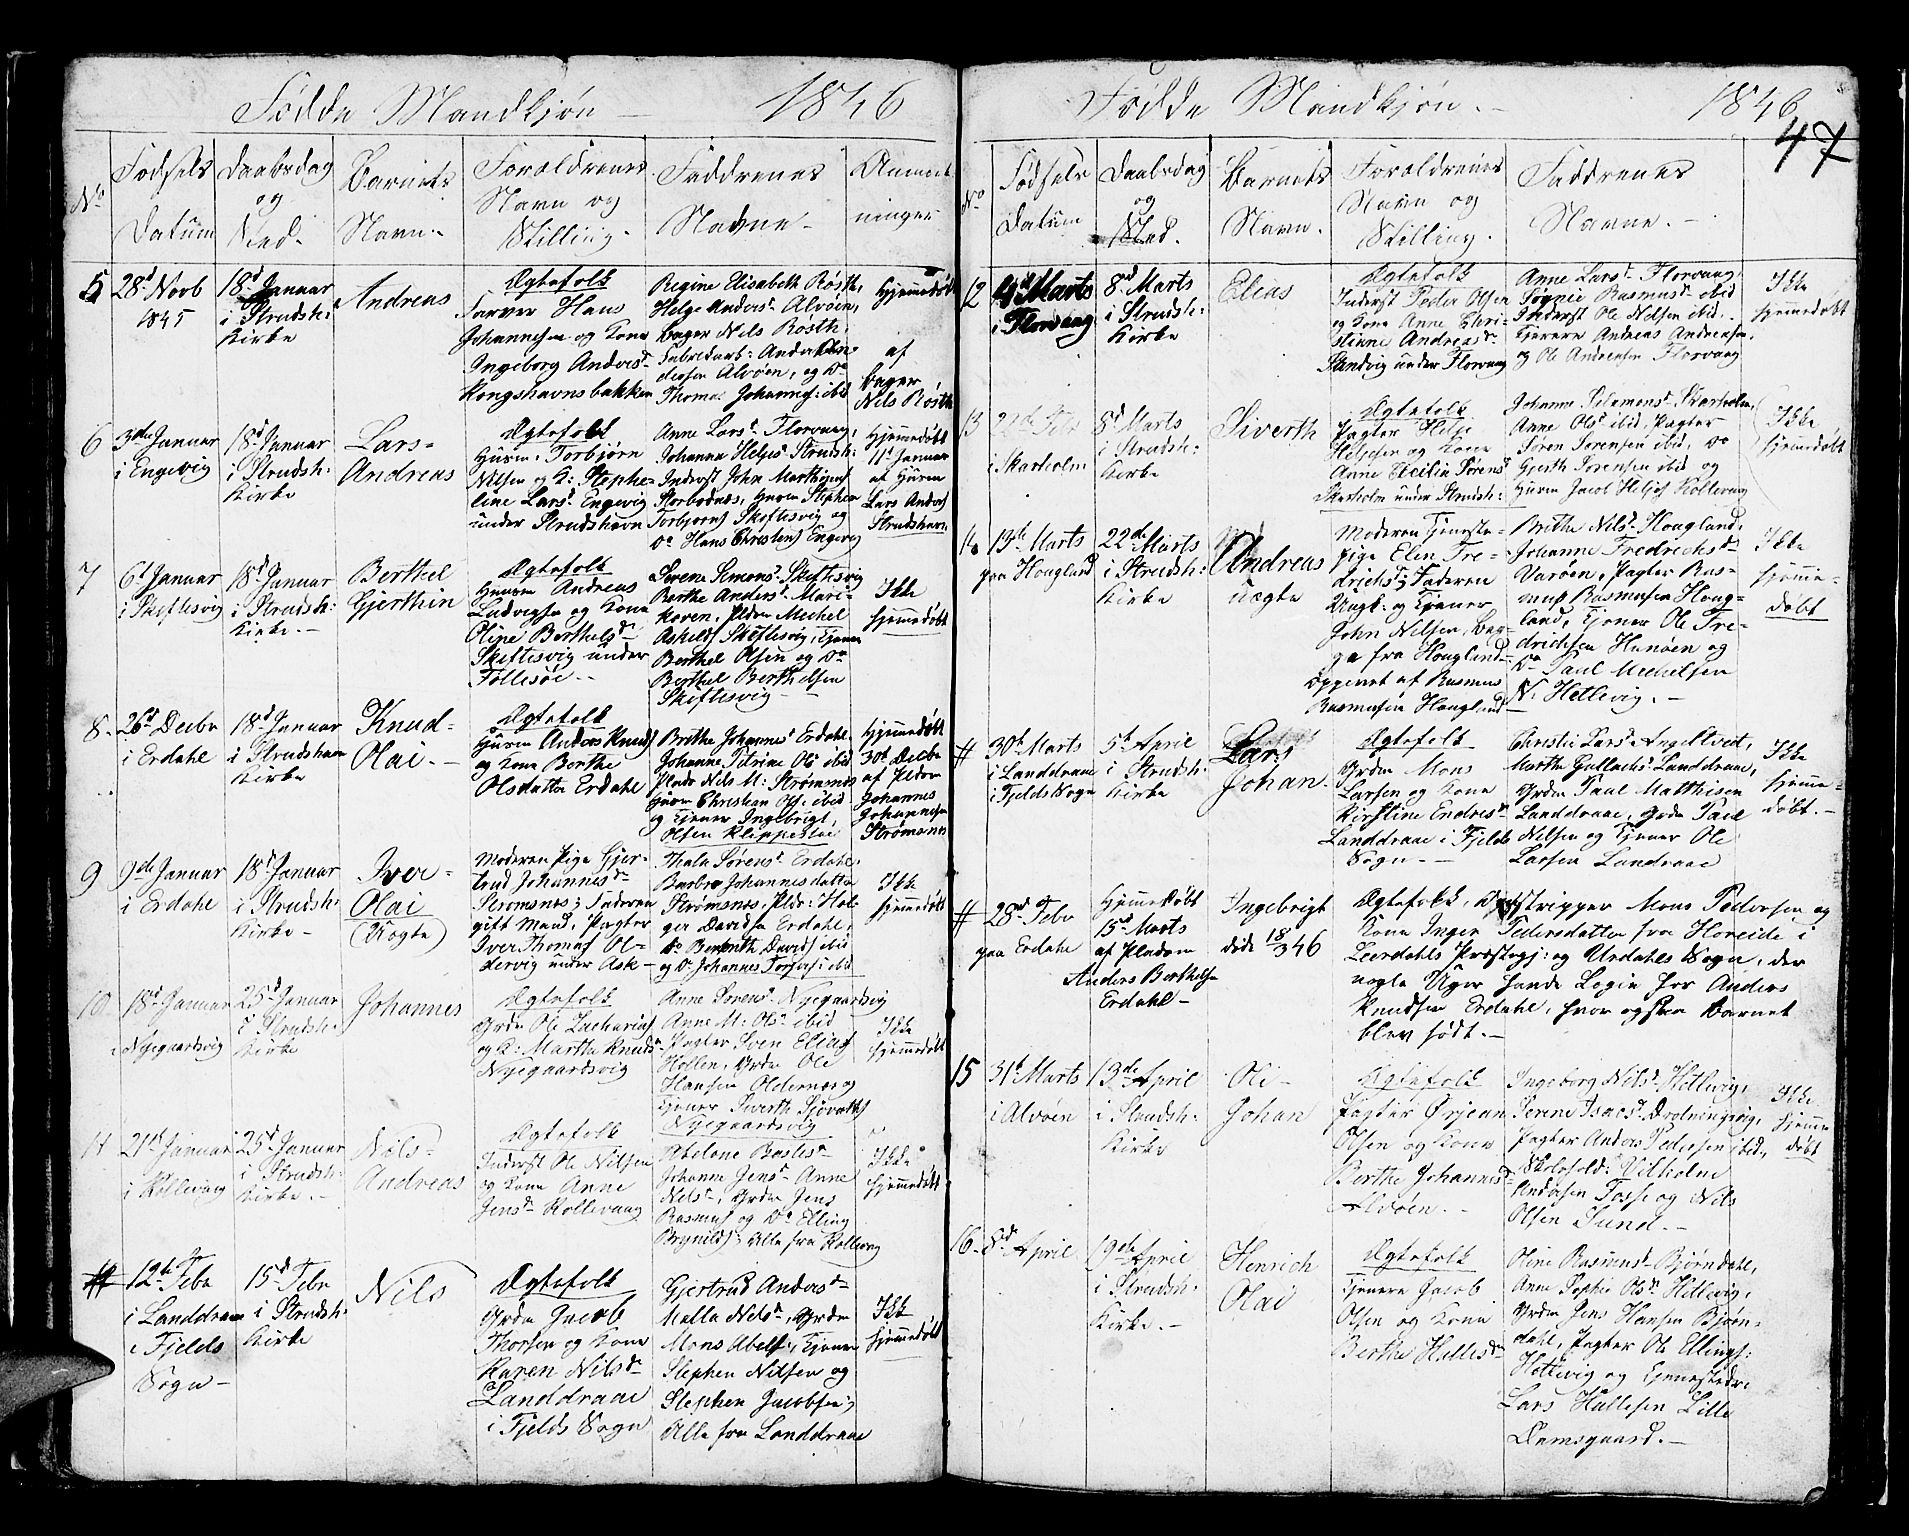 Fødde Mandkjøn — 1846
No
Fødsels Datum
Daabsdag og Sted.
Barnets Navn.
Forældrenes Navn og Stilling.
Faddrenes Navne.
Anmærkninger
5
28d Novb 1845
18d Januar i Strudsh: Kirke
Andreas
Ægtefolk
Farver Hans
Johannesen og Kone
Ingeborg Andersd
Kongshavnsbakken
Regine Elisabeth Rösth,
Helge Andersd Alvøen,
Bager Nils Rösth,
Fabrikarb: Anders
Alvøen, og Do
Thomas Johannes: ibid
Hjemmedøbt
af
Bager
Nils Rösth
6
3die Januar
i Engevig
18d Januar
i Strudsh:
Kirke
Lars-
Andreas
Ægtefolk
Huusm. Torbjørn
Nilsen og K: Stephe-
line Larsd Engevig
under Strudshavn
Anne Larsd Florvaag,
Johanna Helgesd Strudsh:
Inderst John Marthinus
Storbodnes, Huusm Stephen
Torbjørns Skiftesvig og
Do Hans Christens Engevig
Hjemmedøbt
11t Januar
af Huusm
Lars Anders
Strudshavn
7
6t Januar
i Skiftesvig
18d Januar
i Strudsh:
Kirke.—
Berthel
Gjerthin
Ægtefolk
Huusm Andreas
Ludvigsen og Kone
Oline Berthelsd
Skiftesvig under
Follesøe.—
Sorene Simonsd Skiftesvig
Berthe Andersd Mari-
koven, Pldsm Michel
Askelds Skiftesvig, Tjener
Berthel Olsen og Do
Berthel Berthelsen
Skiftesvig—
Ikke
hjemmedøbt
8.
26d Decbr
i Erdahl
18d Januar
i Strudshavn
Kirke
Knud-
Olai.—
Ægtefolk
Huusm Anders Knuds
og Kone Berthe
Olsdatter Erdahl
Brithe Johannesd Erdahl
Johanne Petrine Olsd ibid
Pladsm Nils M: Strømsnes
Huusm Christian Ols: ibid
og Tjener Ingebrigt
Olsen Klippestøe
Hjemmedøbt
30d Decbr
af Pldsm
Johannes
Johannesen
Strømsnes
9
9de Januar
i Erdahl
18d Januar
i Strudsh:
Kirke—
Iver-
Olai
(Uægte)
Moderen Pige Gjer-
trud Johannesd
Strømsnes; Faderen
gift Mand, Pagter
Iver Thomas Ol-
dervig under Ask—
Thala Sørensd Erdahl,
Barbro Johannesdatter
Strømsnes, Pldsm: Hol-
ger Davidsen Erdahl,
Do Berent Davids ibid
og Do Johannes ibid
Ikke
hjemmedøbt
10
18d Januar
i Nyegaardsvig
25d Januar
i Strudsh:
Kirke
Johannes
Ægtefolk
Grdm Ole Zacharias
og K: Marthe Knudsd
Nyegaardsvig
Anne Sørensd Nyegaardsvig
Anne M: Olsd ibid
Pagter Sven Elias
Hollen, Grdm Ole
Hansen Oldernes og
Tjener Siverth
Nyegaardsvig
Ikke
hjemmedøbt
11
21d Januar
i Kollevaag
25d Januar
i Strudsh:
Kirke.—
Nils-
Andreas
Ægtefolk
Inderst Ole Nilsen
og Kone Anne
Jensd Kollevaag
Johanne Jensd Anne
Nilsd, Grdm Jens
Rasmus og Do Elling
Brynilds; Alle fra Kollevaag
Ikke
hjemmedøbt
#
12te Febr
i Landdraae
i Fjelds
Sogn—
15d Febr
i Strudsh:
Kirke
Nils
Ægtefolk
Grdm Jacob
Thorsen og Kone
Karen Nilsd
Landdraae
i Fjelds Sogn
Gjertrud Andersd
Malla Nilsd, Grdm
Mons Abels:, Tjener
Stephen Nilsen og
Stephen Jacobsen;
Alle fra Landdraae
Ikke
hjemmedøbt
Fødde Mandkjøn.— 1846
47
No
Fødsels Datum
Daabsdag og Sted.
Barnets Navn.
Forældrenes Navn og Stilling.
Faddrenes Navne.—
12
Marts
i Florvaag
8d Marts
i Strudsh:
Kirke
Elias
Ægtefolk
Inderst Peder Olsen
og Kone Anne Chri-
stine Andreasd
Sandvig under Florvaag
Anne Larsd Florvaag,
Sophie Rasmusd ibid
Inderst Ole Nilsen ibid,
Tjenere Andreas Andreasen
og Ole Andreasen Florvaag
Ikke
hjemmedøbt
13
22d Febr
i Skarholm
8d Marts
i Strudsh:
Kirke
Siverth
Ægtefolk
Pagter Helje
Heljesen og Kone
Anne Cecilia Sørensd
Skarholm under Strudsh:
Johanne Salamonsd Skarholm,
Anne Olsd ibid, Pagter
Søren Sørensen ibid, Do
Gjerth Sørensen ibid og
Huusm Jacob Heljes Kollevaag
Ikke
hjemmedøbt
14
13de Marts
paa Hougland
22de Marts
i Strudsh:
Kirke
Andreas
uægte
Moderen Tjeneste-
pige Elen Fre-
drichsd; Faderen
Ungk: og Tjener
John Nilsen, Beg-
ge fra Hougland—
opgivet af Rasmus
Rasmussen Hougland
Brithe Nilsd Hougland,
Johanne Fredrichsd
Varøen, Pagter Ras-
mus Rasmussen Houg-
land, Tjener Ole Fre-
drichsen Hanøen og
Do Paul Michelsen
N: Hetlevig.—
Ikke
hjemme-
døbt
#
30t Marts
i Landdraae
i Fjelds Sogn
5t April
i Strudsh:
Kirke
Lars
Johan.
Ægtefolk
Grdm Mons
Larsen og Kone
Kirstine Endresd
Landdraae i Fjelds
Sogn.—
Christie Larsd Angeltvedt,
Marthe Gullachsd Landdraae,
Grdm Paul Matthisen
Landdraae, Grdm Paul
Nilsen og Tjener Ole
Larsen Landraae
Ikke
hjemme-
døbt.—
#
28d Febr
paa Erdahl
Hjemmedøbt
15d Marts
af Pladsm
Anders Berthelsen
Erdahl—
Ingebrigt
døde 18/3 46
Ægtefolk, Mons Pedersen og
Kone Inger Pedersdatter fra Horeide i
Leerdahls Præstegj: og Urdahls Sogn, der
nogle Uger havde Logie hos Anders
Knudsen Erdahl, hvor ogsaa Barnet
blev født.—
15
31t Marts
i Alvøen
13de April
i Strudsh:
Kirke
Ole-
Johan
Ægtefolk
Pagter Ørjean
Olsen og Kone
Berthe Johannesd
Alvøen.—
Ingeborg Nilsd Hetlevig,
Serine Isacsd Drotningsvig,
Pagter Anders Pedersen ibid,
Skolehold: Vilhelm
Andersen Fosse og Nils
Olsen Sund.—
Ikke
hjemme
døbt
16.
5d April
19de April
i Strudsh:
Kirke.—
Henrich
Olai
Ægtefolk
Tjener Jacob
Olsen og Kone
Berthe Hallesd
Oline Rasmusd Bjørndahl,
Anne Sophie Olsd Hetlevig,
Grdm Jens Hansen Bjørn-
dahl, Pagter Ole Ellings:
Hetlevig og Tjenestedr:
Lars Hallesen Lille
Damsgaard.—